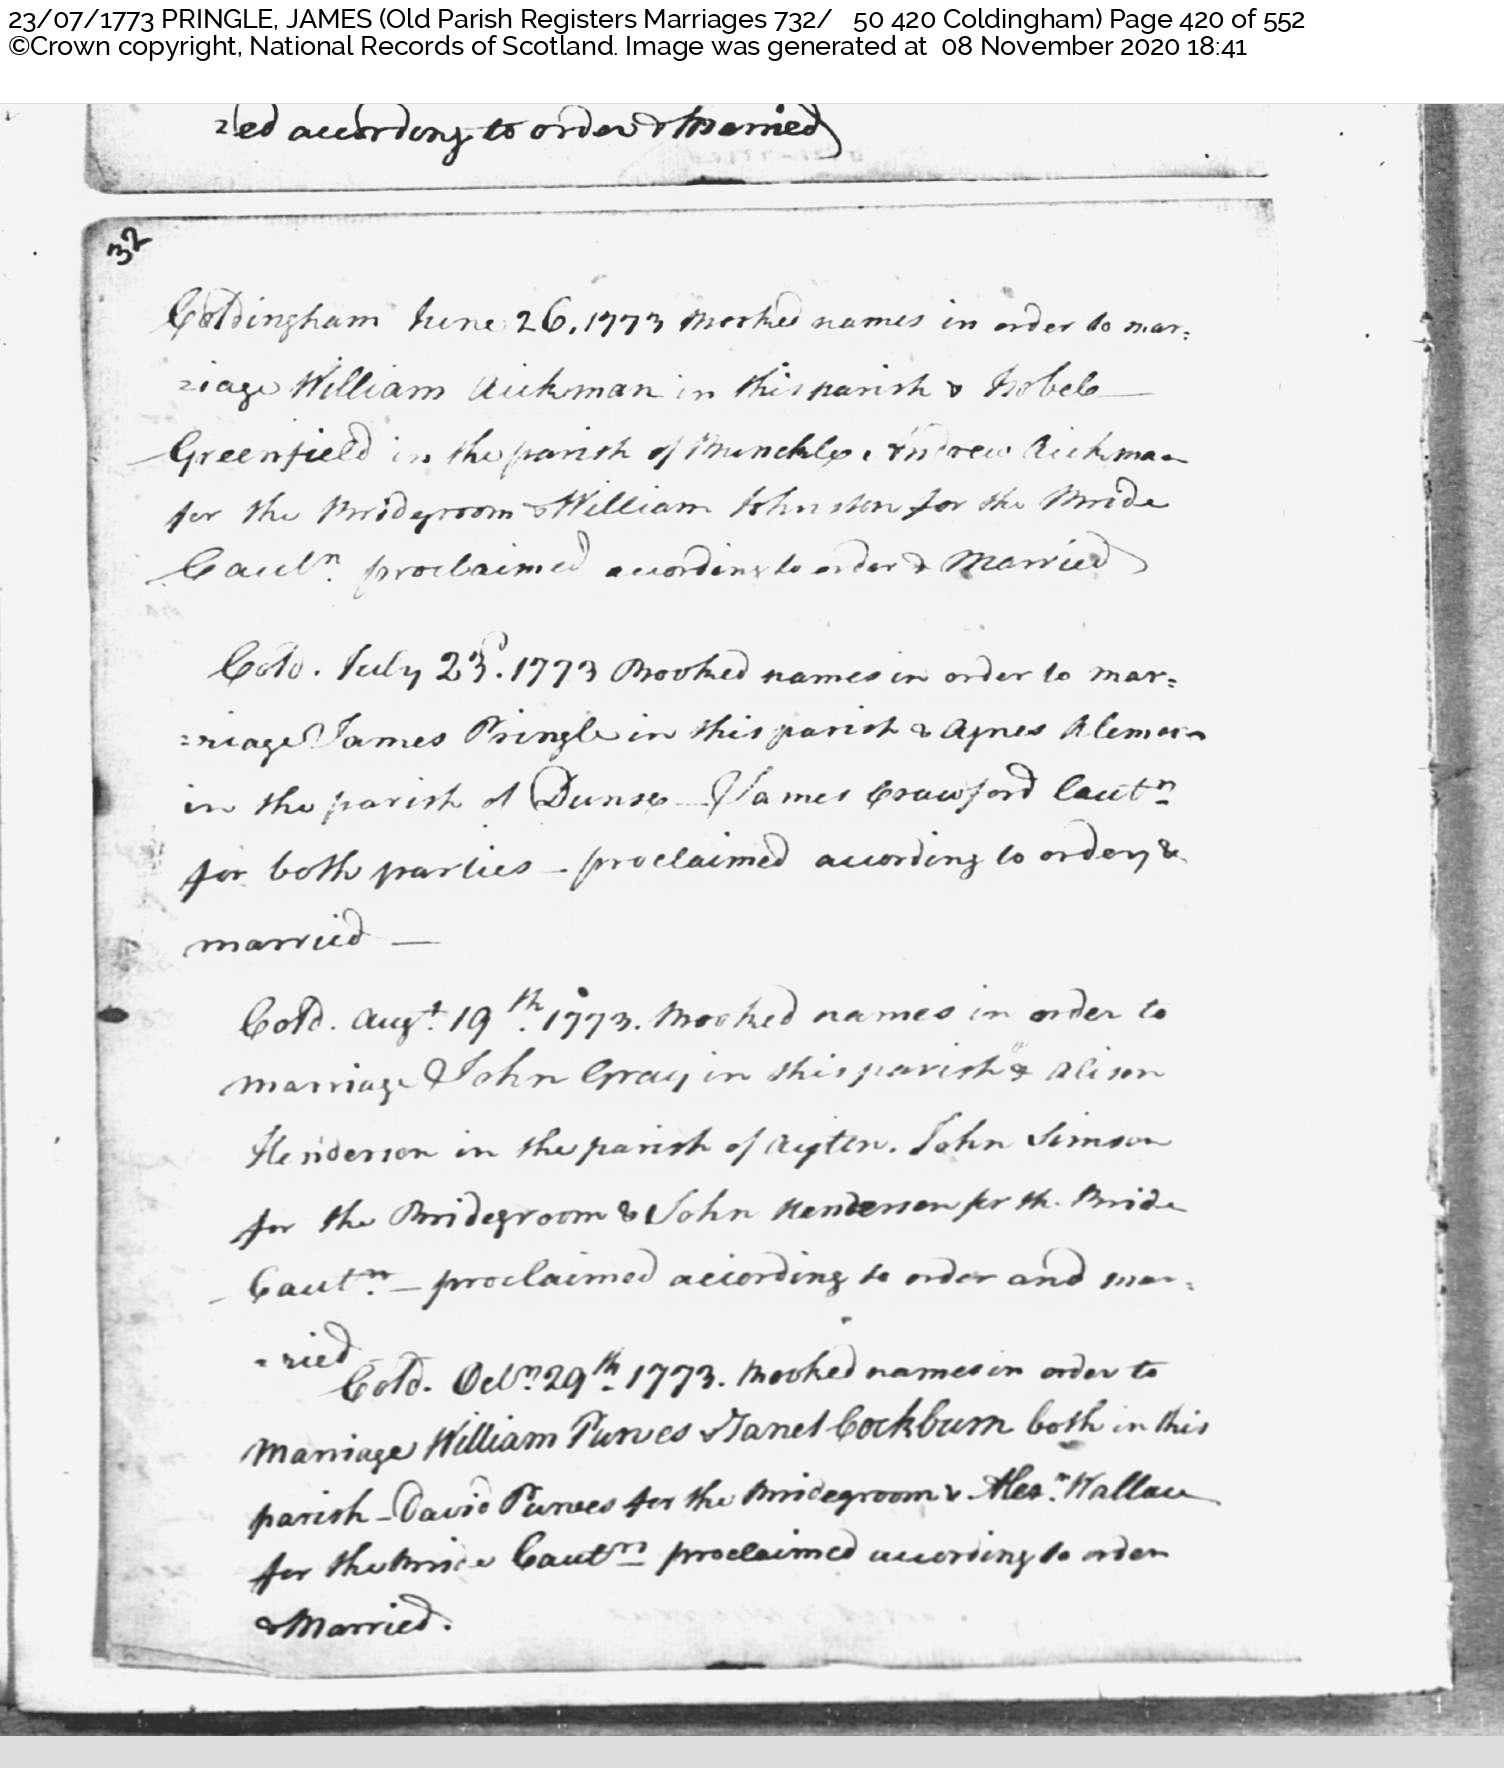 23/07/1773 PRINGLE, JAMES (Old Parish Registers Marriages 732/ 50 420 Coldingham) Page 420 of 552
©Crown copyright, National Records of Scotland. Image was generated at 08 November 2020 18:41
=ed according to order & Married
32
Coldingham June 26. 1773 Booked names in order to mar=
=iage William Aickman in this parish & Isobel
Greenfield in the parish of Bunckle. Andrew Aickman
for the Bridegroom & William Johnston for the Bride
Cautn. proclaimed according to order & Married
Cold. July 23d. 1773 Booked names in order to mar=
=riage James Pringle in this parish & Agnes
in the parish of Dunse James Crawford Cautn
for both parties - proclaimed according to order &
married -
Cold. Augt. 19th. 1773. Booked names in order to
marriage John Gray in this parish & Alison
Henderson in the parish of Ayton. John Simson
for the Bridegroom & John Henderson for th. Bride
Cautn. - proclaimed according to order and mar=
=ried
Cold. Octr. 29th. 1773. Booked names in order to
Marriage William Purves & Janet Cockburn both in this
parish - David Purves for the Bridegroom & Alexr. Wallace
for the Bride Cautrs proclaimed according to order
& Married.